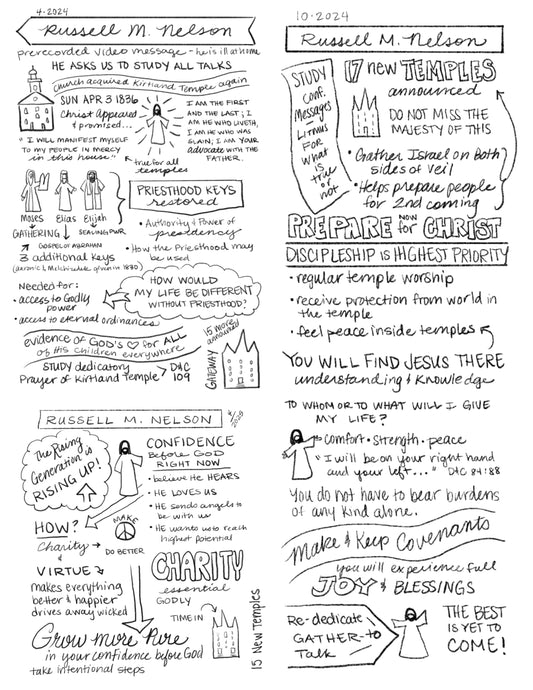 4-2024
Russell M. Nelson
prerecorded video message - he is ill at home
HE ASKS US TO STUDY ALL TALKS
Church acquired Kirtland Temple again
SUN APR 3 1836
Christ Appears
& promised...
"I WILL MANIFEST MYSELF
TO MY PEOPLE IN MERCY
in this house."
↑ true for all
temples
I AM THE FIRST
AND THE LAST; I
AM HE WHO LIVETH,
I AM HE WHO WAS
SLAIN; I AM YOUR
ADVOCATE WITH THE
FATHER.
Moses Elias Elijah
GATHERING ↓ SEALING PWR
↑ GOSPEL OF ABRAHAM
3 additional Keys
(Aaronic & Melchizedek given in 1830)
PRIESTHOOD KEYS
restored
• Authority & Power of
presidency
• How the Priesthood may
be used
Needed for:
• access to Godly
power
• access to eternal ordinances
HOW WOULD
MY LIFE BE DIFFERENT
WITHOUT PRIESTHOOD?
evidence of GOD'S ♡ for ALL
of His children everywhere
STUDY dedicatory
Prayer of Kirtland Temple > D&C
109
15 more
announced
GATEWAY
RUSSELL M. NELSON
The Rising
Generation is
RISING UP!
CONFIDENCE
Before GOD
RIGHT NOW
• believe He HEARS
• HE LOVES US
• HE sends angels to
be with us
• HE wants us to reach
highest potential
HOW?
Charity →
&
VIRTUE
makes everything
better & happier
drives away wicked
MAKE
DO BETTER
CHARITY
essential
GODLY
TIME IN
Grow more Pure
in your confidence before God
take intentional steps
15 New Temples
10-2024
RUSSELL M. Nelson
STUDY
Conf.
Messages
Litmus
FOR
what
is
true
or
not
17 new TEMPLES
announced
DO NOT MISS THE
MAJESTY OF THIS
• Gather Israel on Both
sides of Veil
• Helps prepare people
for 2nd coming
PREPARE NOW for CHRIST
DISCIPLESHIP is HIGHEST PRIORITY
• regular temple worship
• receive protection from world in
the temple
• feel peace inside temples
YOU WILL FIND JESUS THERE
understanding & Knowledge
TO WHOM OR TO WHAT WILL I GIVE
MY LIFE?
comfort • strength • peace
"I will be on your right hand
and your left..." D&C 84:88
You do not have to bear burdens
of any kind alone.
Make & Keep Covenants
you will experience full
JOY & BLESSINGS
Re-dedicate
GATHER-to
Talk
THE BEST
IS YET TO
COME!